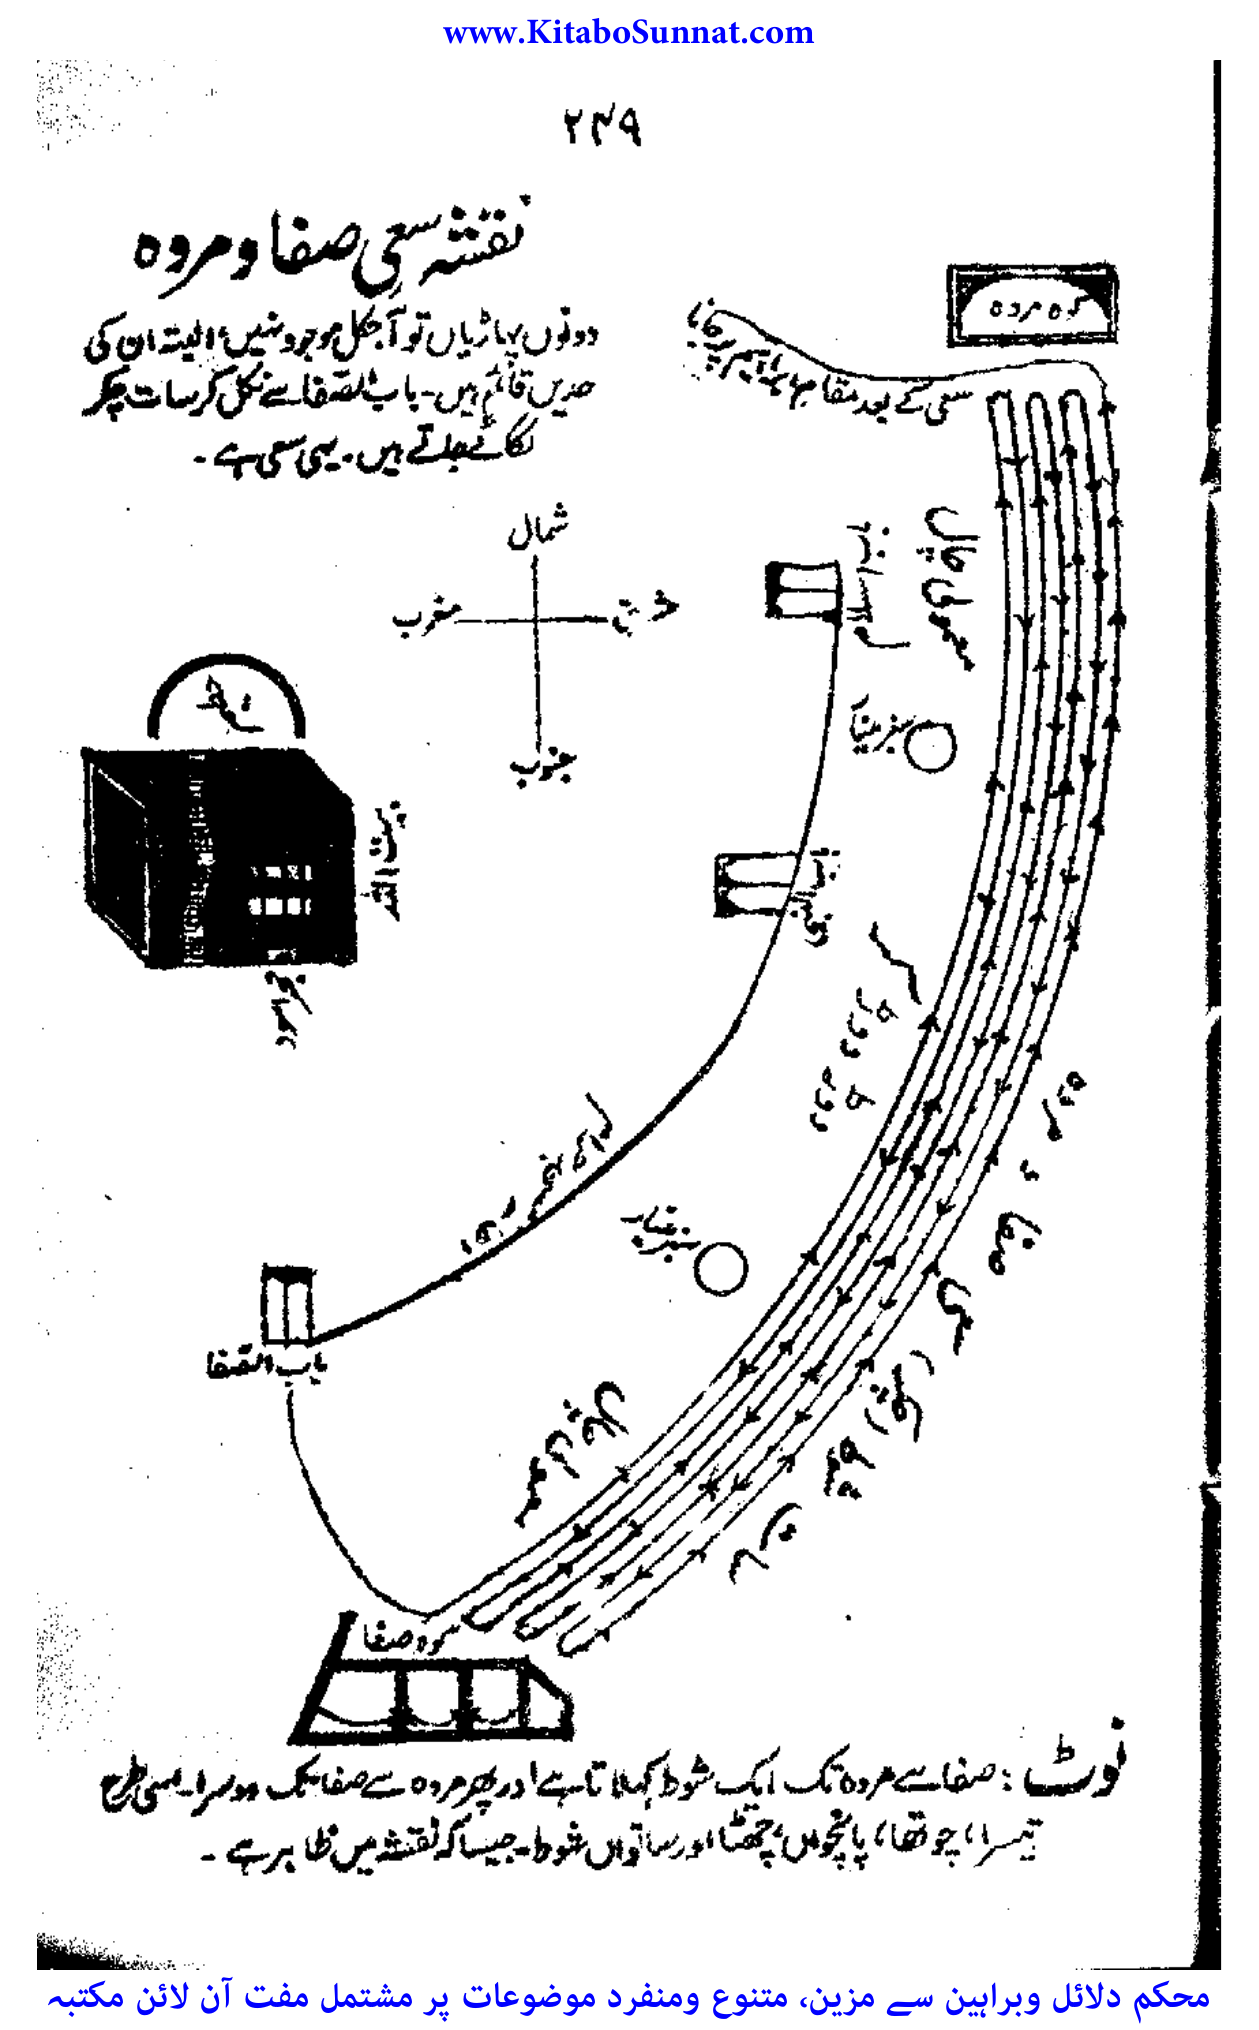 www.KitaboSunnat.com
۲۴۹
نقشہ سعی صفا و مروہ
دونوں پہاڑیاں تو آجکل موجود نہیں، البتہ ان کی
حدیں قائم ہیں۔ باب الصفا سے نکل کر سات چکر
لگائے جاتے ہیں۔ یہی سعی ہے۔
کوہ مروہ
سعی کے بعد مقام پر جانا
شمال
مغرب
شرق
جنوب
باب السلام
معمولی چال
سبز مینار
حطیم
بیت اللہ
حجر اسود
باب النبی
دوڑ کر
سبز مینار
باب الصفا
معمولی چال
سات شوط (چکر) سعی صفا و مروہ
کوہ صفا
نوٹ: صفا سے مروہ تک ایک شوط کہلاتا ہے اور پھر مروہ سے صفا تک دوسرا۔ اسی طرح
تیسرا، چوتھا، پانچواں، چھٹا اور ساتواں شوط۔ جیسا کہ نقشہ میں ظاہر ہے۔
محکم دلائل وبراہین سے مزین، متنوع ومنفرد موضوعات پر مشتمل مفت آن لائن مکتبہ